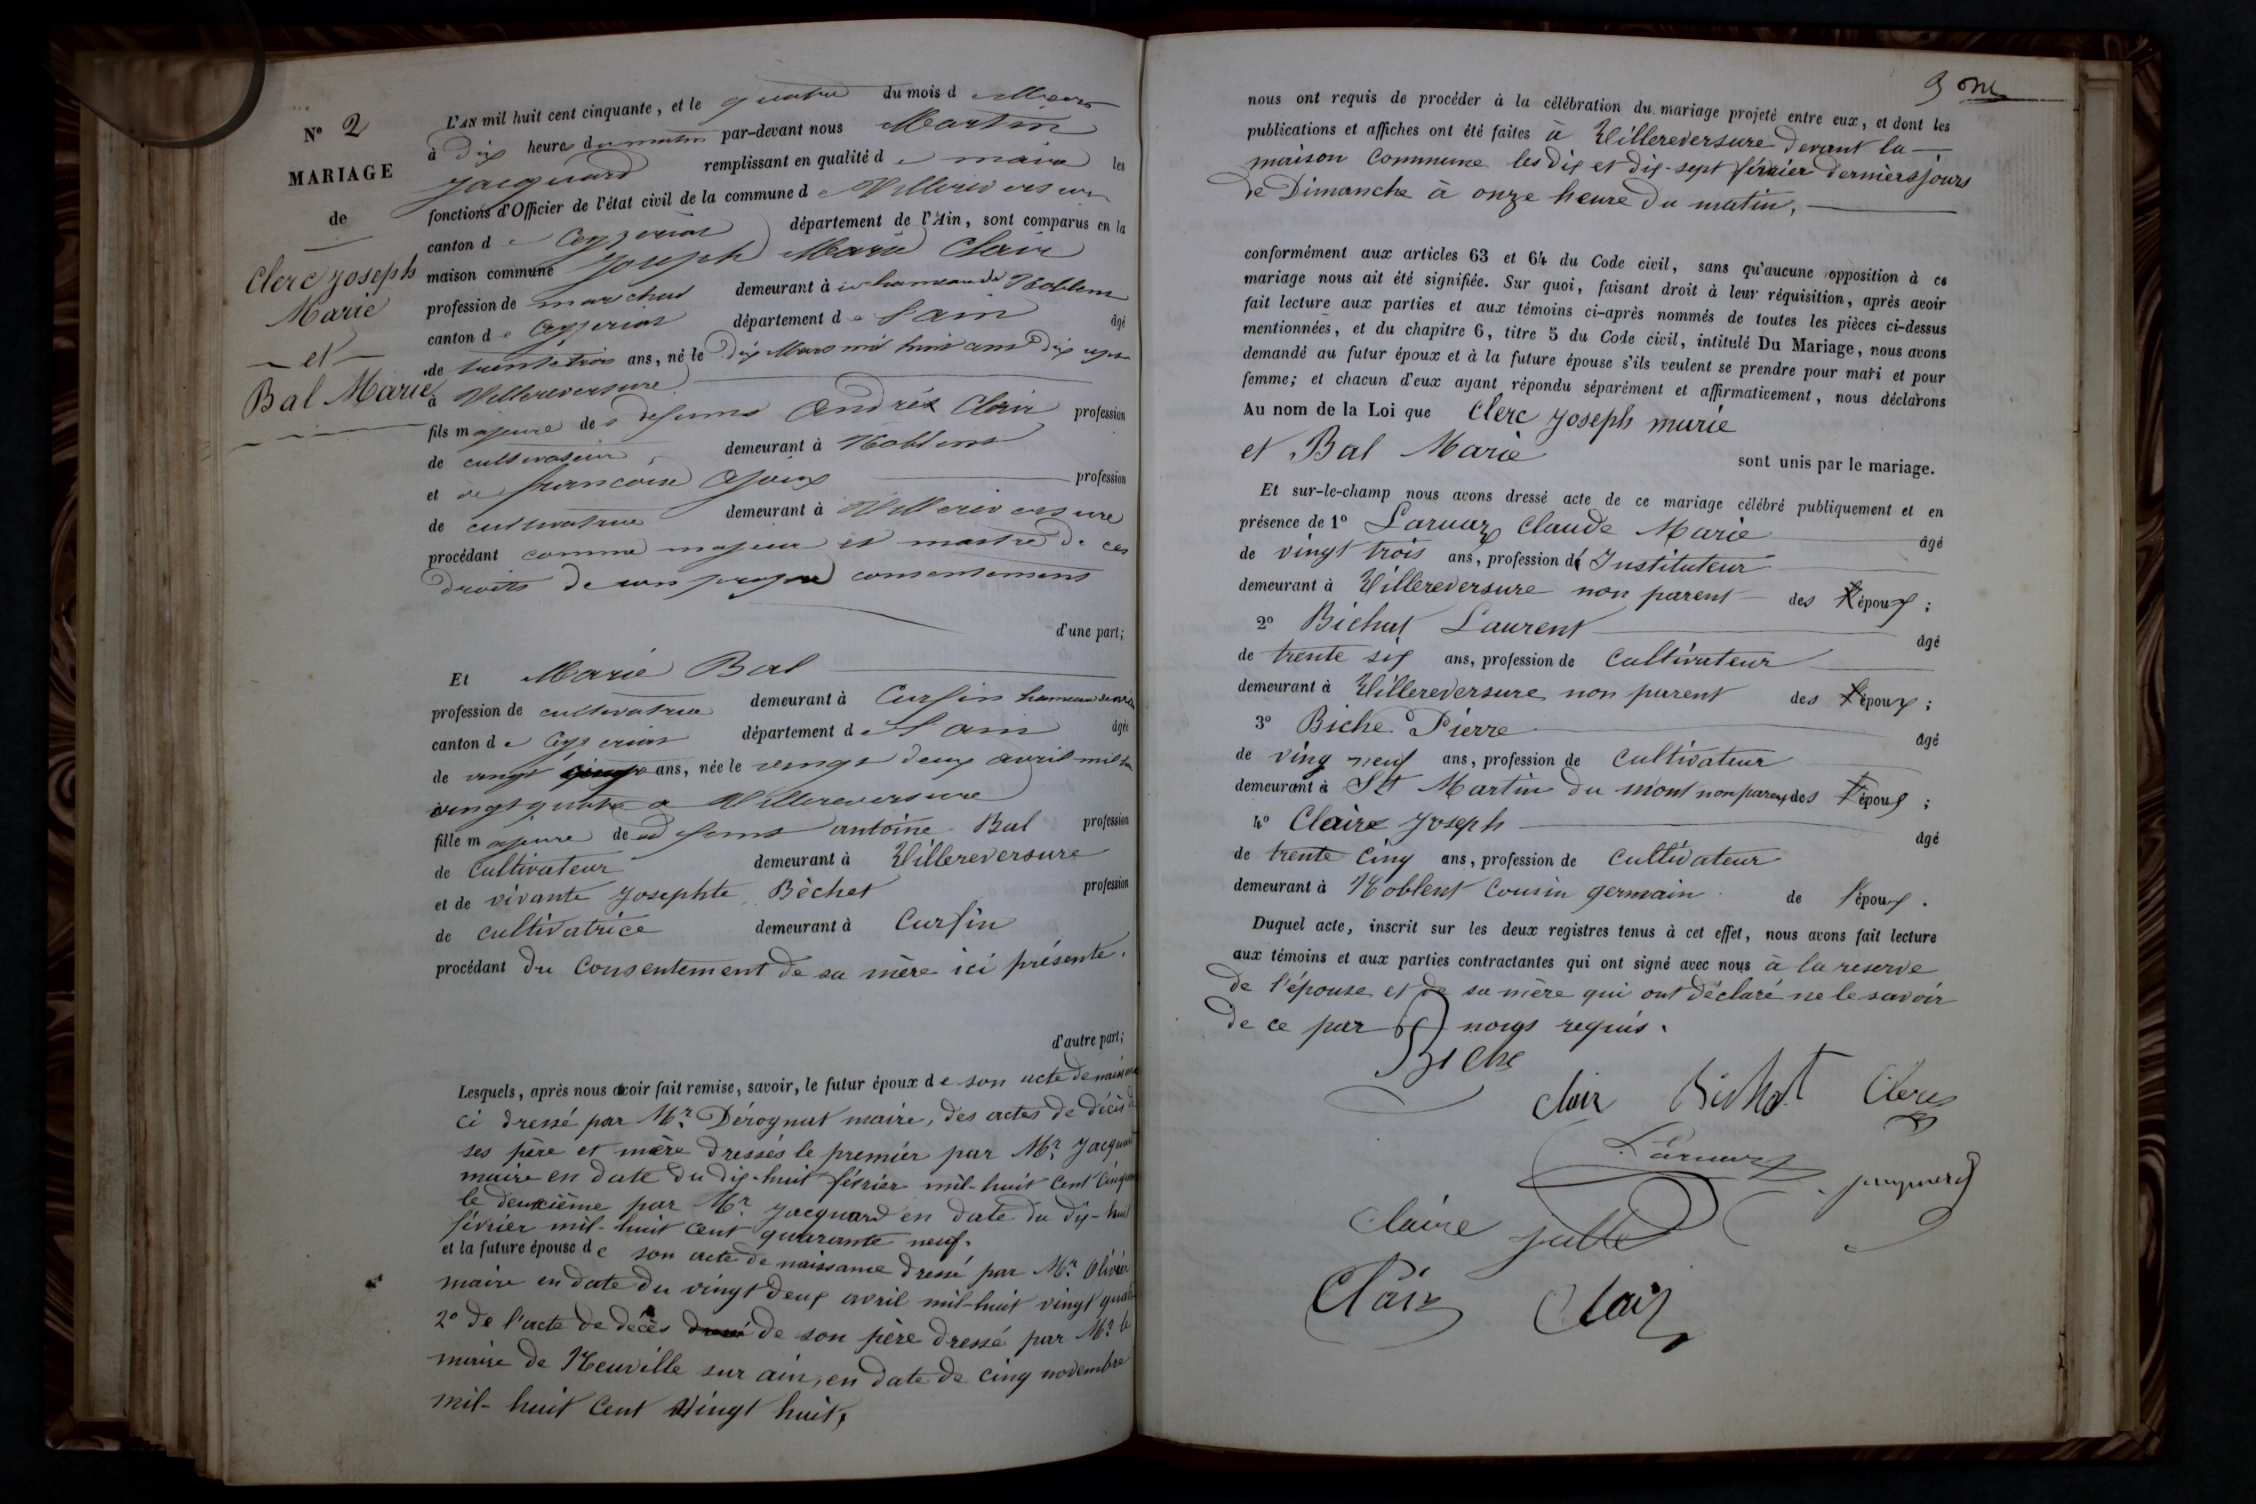 N° 2
MARIAGE
de
Clerc Joseph
Marie
et
Bal Marie
L'AN mil huit cent cinquante, et le quatre du mois d Mars
à dix heures du matin par-devant nous Martin
Jacquard remplissant en qualité de maire les
fonctions d'Officier de l'état civil de la commune de Villereversure
canton de Ceyzeriat département de l'Ain, sont comparus en la
maison commune Joseph Marie Clair
profession de demeurant à hameau de Noblens
canton de Ceyzeriat département de l'ain âgé
de trente trois ans, né le dix Mars mil huit cent dix sept
à Villereversure
fils majeure des defunts Andréx Clair profession
de cultivateur demeurant à Noblens
et de francoise profession
de cultivatrice demeurant à Villereversure
procédant comme majeur et maitre de ces
droits de son propre consentement
d'une part;
Et Marie Bal
profession de cultivatrice demeurant à Curfin hameau de
canton de Ceyzeriat département de l'ain âgée
de vingt ans, née le vingt deux avril mil
vingt quatre a Villereversure
fille majeure de defunt antoine Bal profession
de Cultivateur demeurant à Villereversure
et de vivante Josephte Bèchet profession
de cultivatrice demeurant à Curfin
procédant du Consentement de sa mère ici présente.
d'autre part;
Lesquels, après nous avoir fait remise, savoir, le futur époux de son acte de
ci dressé par Mr. Dérognat maire, des actes de décès
ses père et mère dressés le premier par Mr. Jacquard
maire en date du dix-huit février mil-huit cent
le deuxième par Mr. Jacquard en date du dix-huit
février mil-huit cent quarante neuf.
et la future épouse de son acte de naissance dressé par Mr. Olivier
maire en date du vingt deux avril mil-huit vingt quatre
2° de l'acte de décès de son père dressé par Mr. le
maire de Neuville sur ain, en date de cinq novembre
mil-huit cent vingt huit,
nous ont requis de procéder à la célébration du mariage projeté entre eux, et dont les
publications et affiches ont été faites à Villereversure devant la
maison Commune les dix et dix-sept février derniers jours
de Dimanche à onze heure du matin,
conformément aux articles 63 et 64 du Code civil, sans qu'aucune opposition à ce
mariage nous ait été signifiée. Sur quoi, faisant droit à leur réquisition, après avoir
fait lecture aux parties et aux témoins ci-après nommés de toutes les pièces ci-dessus
mentionnées, et du chapitre 6, titre 5 du Code civil, intitulé Du Mariage, nous avons
demandé au futur époux et à la future épouse s'ils veulent se prendre pour mari et pour
femme; et chacun d'eux ayant répondu séparément et affirmativement, nous déclarons
Au nom de la Loi que Clerc Joseph marie
et Bal Marie sont unis par le mariage.
Et sur-le-champ nous avons dressé acte de ce mariage célébré publiquement et en
présence de 1° Laruaz Claude Marie âgé
de vingt trois ans, profession d'Instituteur
demeurant à Villereversure non parent des époux;
2° Bichat Laurent âgé
de trente six ans, profession de Cultivateur
demeurant à Villereversure non parent des époux;
3° Biche Pierre âgé
de ving neuf ans, profession de Cultivateur
demeurant à St Martin du mont non parent des époux;
4° Claire Joseph âgé
de trente Cinq ans, profession de Cultivateur
demeurant à Noblent Cousin germain de l'époux.
Duquel acte, inscrit sur les deux registres tenus à cet effet, nous avons fait lecture
aux témoins et aux parties contractantes qui ont signé avec nous à la reserve
de l'épouse et de sa mère qui ont déclaré ne le savoir
de ce par nous requis.
Biche
Clair Bichat Clerc
Laruaz
Jacquard
Claire
Clair Clair